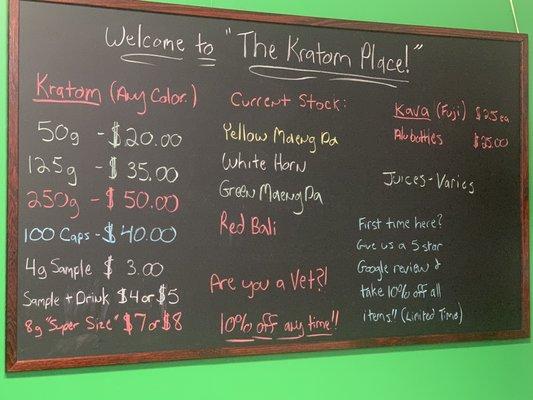 Welcome to "The Kratom Place!"
Kratom (Any Color)
50g - $20.00
125g - $35.00
250g - $50.00
100 Caps - $40.00
4g Sample $ 3.00
Sample + Drink $4 or $5
8g "Super Size" $7 or $8
Current Stock:
Yellow Maeng Da
White Horn
Green Maeng Da
Red Bali
Are you a Vet?!
10% off any time!!
Kava (Fuji) $25 ea
$25.00
Juices - Varies
First time here?
Give us a 5 star
Google review &
take 10% off all
items!! (Limited Time)